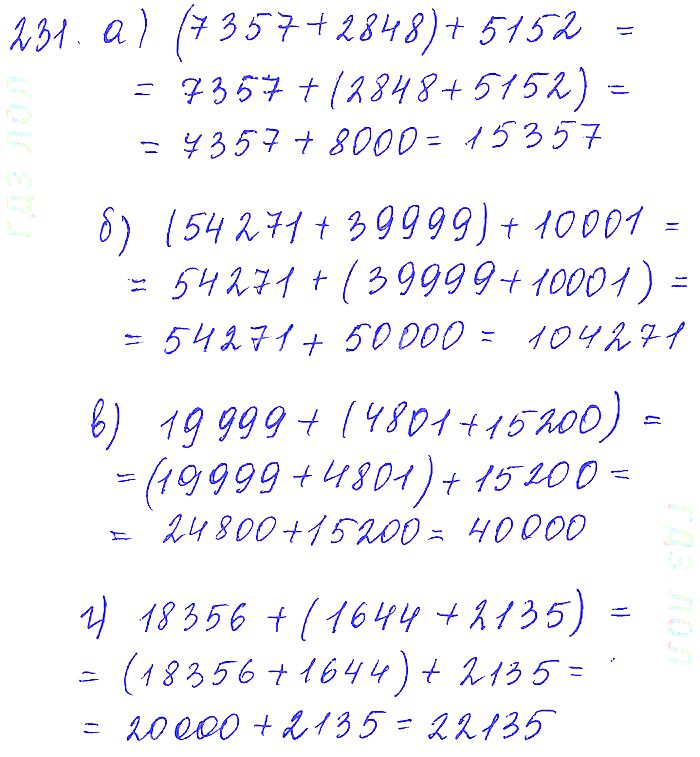 231. а) (7357+2848)+5152 =
= 7357+(2848+5152) =
= 7357+8000= 15357
б) (54271+39999)+10001 =
= 54271+(39999+10001) =
= 54271+50000= 104271
в) 19999+(4801+15200) =
=(19999+4801)+15200 =
= 24800+15200= 40000
г) 18356 + (1644+2135) =
= (18356+1644)+2135 =
= 20000+2135 = 22135
ГДЗ ЛОЛ
ГДЗ ЛОЛ